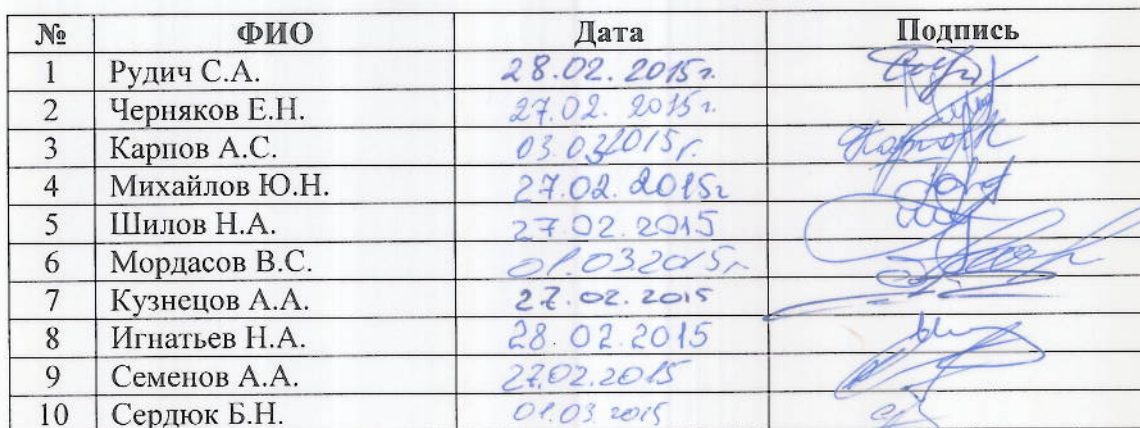 № ФИО Дата Подпись
1 Рудич С.А. 28.02.2015г.
2 Черняков Е.Н. 27.02.2015г.
3 Карпов А.С. 03.032015г.
4 Михайлов Ю.Н. 27.02.2015г
5 Шилов Н.А. 27.02.2015
6 Мордасов В.С. 01.032015г.
7 Кузнецов А.А. 27.02.2015
8 Игнатьев Н.А. 28.02.2015
9 Семенов А.А. 27.02.2015
10 Сердюк Б.Н. 01.03.2015